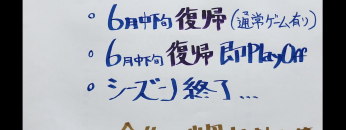 。6月中下旬 復帰 (通常ゲーム有り)
。6月中下旬 復帰 即PlayOff
。シーズン終了...